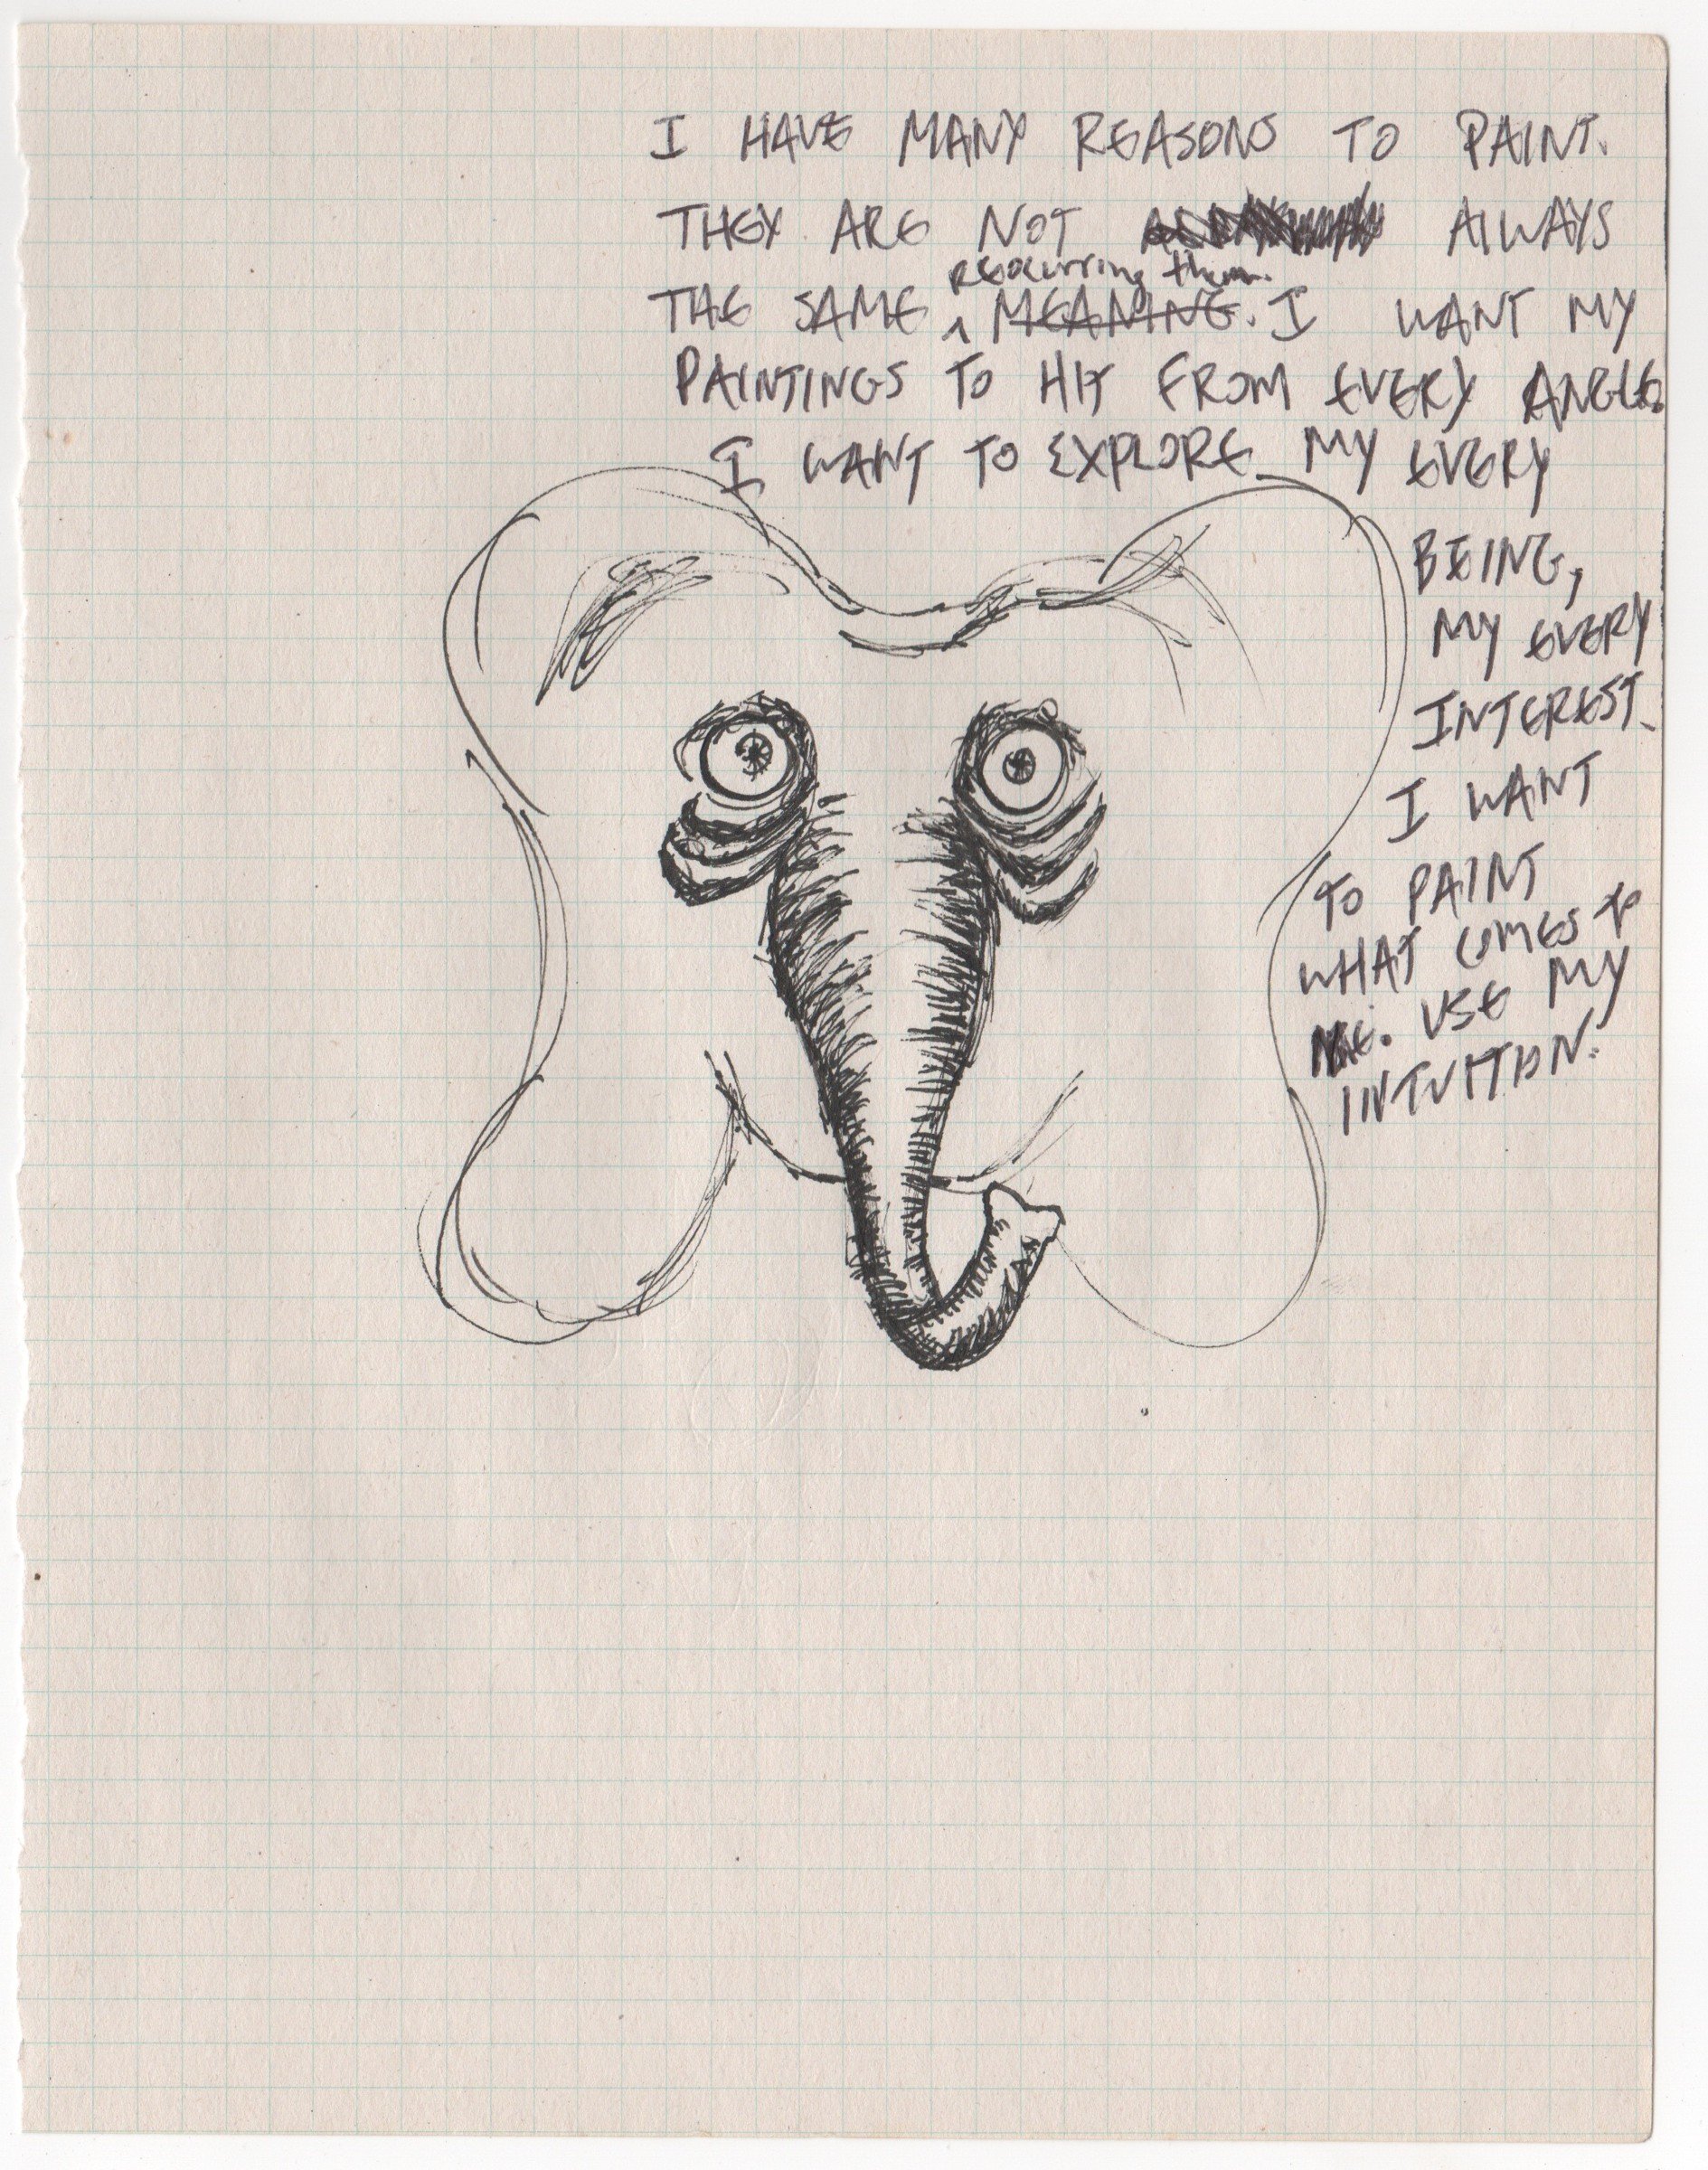 I HAVE MANY REASONS TO PAINT.
THEY ARE NOT ALWAYS
reocurring them.
THE SAME ^ MEANING. I WANT MY
PAINTINGS TO HIT FROM EVERY ANGLE.
I WANT TO EXPLORE MY EVERY
BEING,
MY EVERY
INTEREST.
I WANT
TO PAINT
WHAT COMES TO
ME. USE MY
INTUITION.